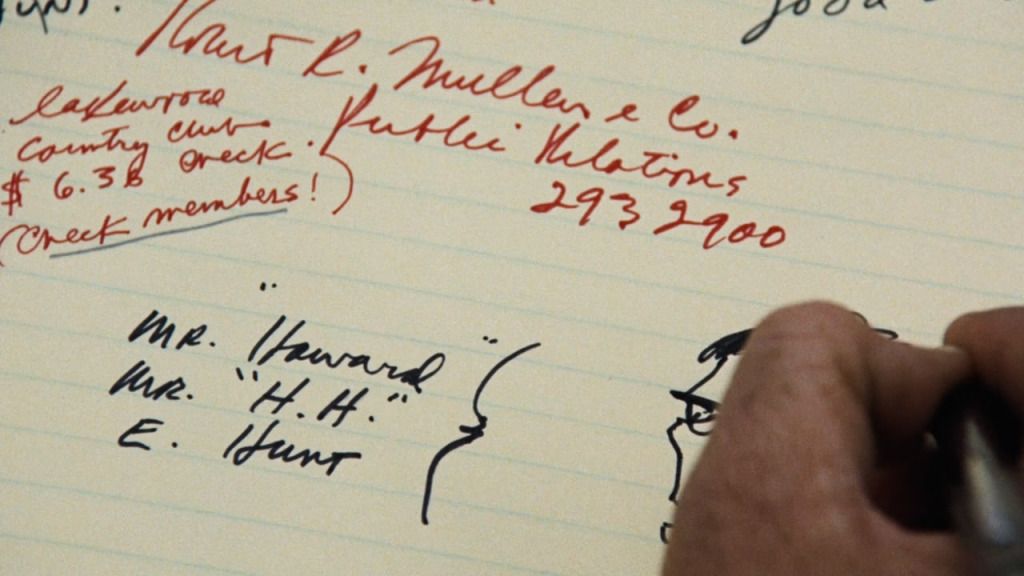 Robert R. Mullen & Co.
Public Relations
293 2900
Lakewood
Country Club
$ 6.38 check.
(Check members!)
Mr. "Howard"
Mr. "H.H."
E. Hunt